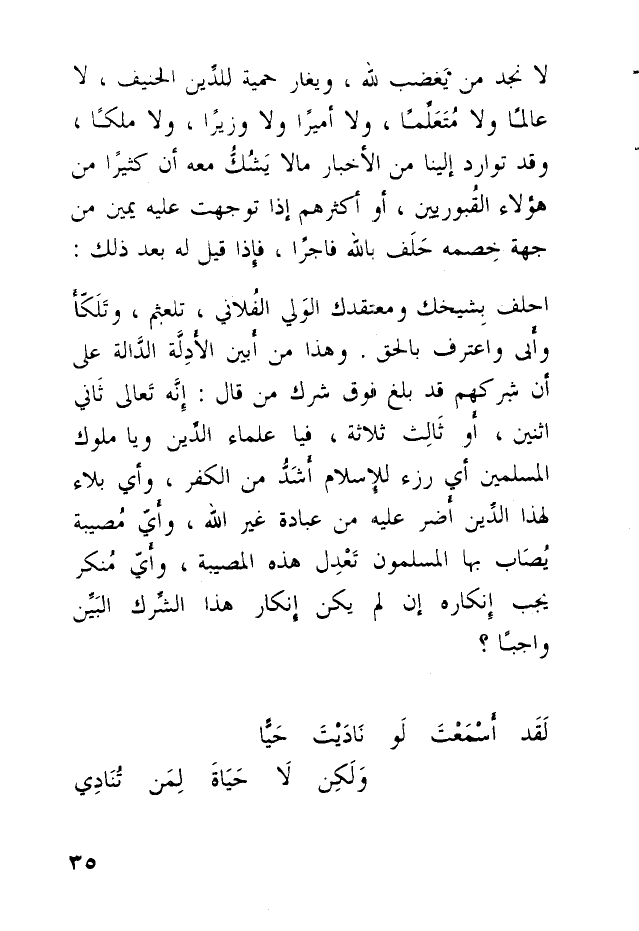 لا نجد من يَغضب لله ، ويغار حمية للدِّين الحنيف ، لا
عالمًا ولا مُتَعَلِّمـًا ، ولا أميرًا ولا وزيرًا ، ولا ملكـًا ،
وقد توارد إلينا من الأخبار مالا يَشُكُّ معه أن كثيرًا من
هؤلاء القُبوريين ، أو أكثرهم إذا توجهت عليه يمين من
جهة خِصمه حَلَف بالله فاجرًا ، فإِذا قيل له بعد ذلك :
احلف بِشيخك ومعتقدك الوَلي الفُلاني ، تلعثم ، وتَلَكّأَ
وأَبى واعترف بالحق . وهذا من أَبين الأَدِلَّة الدَّالة على
أن شِركهم قد بلغ فوق شرك من قال : إِنَّه تَعالى ثَاني
اثنين ، أَو ثَالِث ثلاثة ، فيا علماء الدِّين ويا ملوك
المسلمين أي رزء للإِسلام أَشَدُّ من الكفر ، وأي بلاء
لهذا الدِّين أَضر عليه من عبادة غير الله ، وأَيّ مُصيبة
يُصَاب بها المسلمون تَعْدِل هذه المصيبة ، وأَيّ مُنكر
يجب إِنكاره إن لم يكن إِنكار هذا الشِّرك البَيِّن
واجبـًا ؟
لَقَد أَسْمَعْتَ لَو نَادَيْتَ حَيًّا
وَلَكِن لَا حَيَاةَ لِمَن تُنَادِي
٣٥